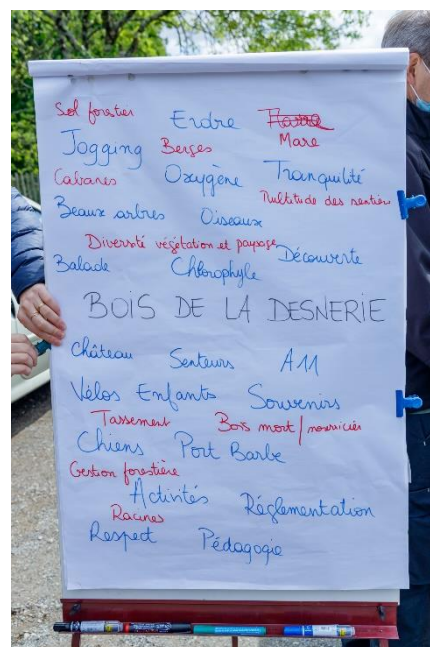 Sol forestier Erdre Mare
Jogging Berges Mare
Cabanes Oxygène Tranquilité
Multitude des sentiers
Beaux arbres Oiseaux
Diversité végétation et paysage
Balade Chlorophyle Découverte
BOIS DE LA DESNERIE
Château Senteurs A11
Vélos Enfants Souvenirs
Tassement Bois mort/nourricier
Chiens Port Barbe
Gestion forestière
Activités Réglementation
Racines
Respect Pédagogie